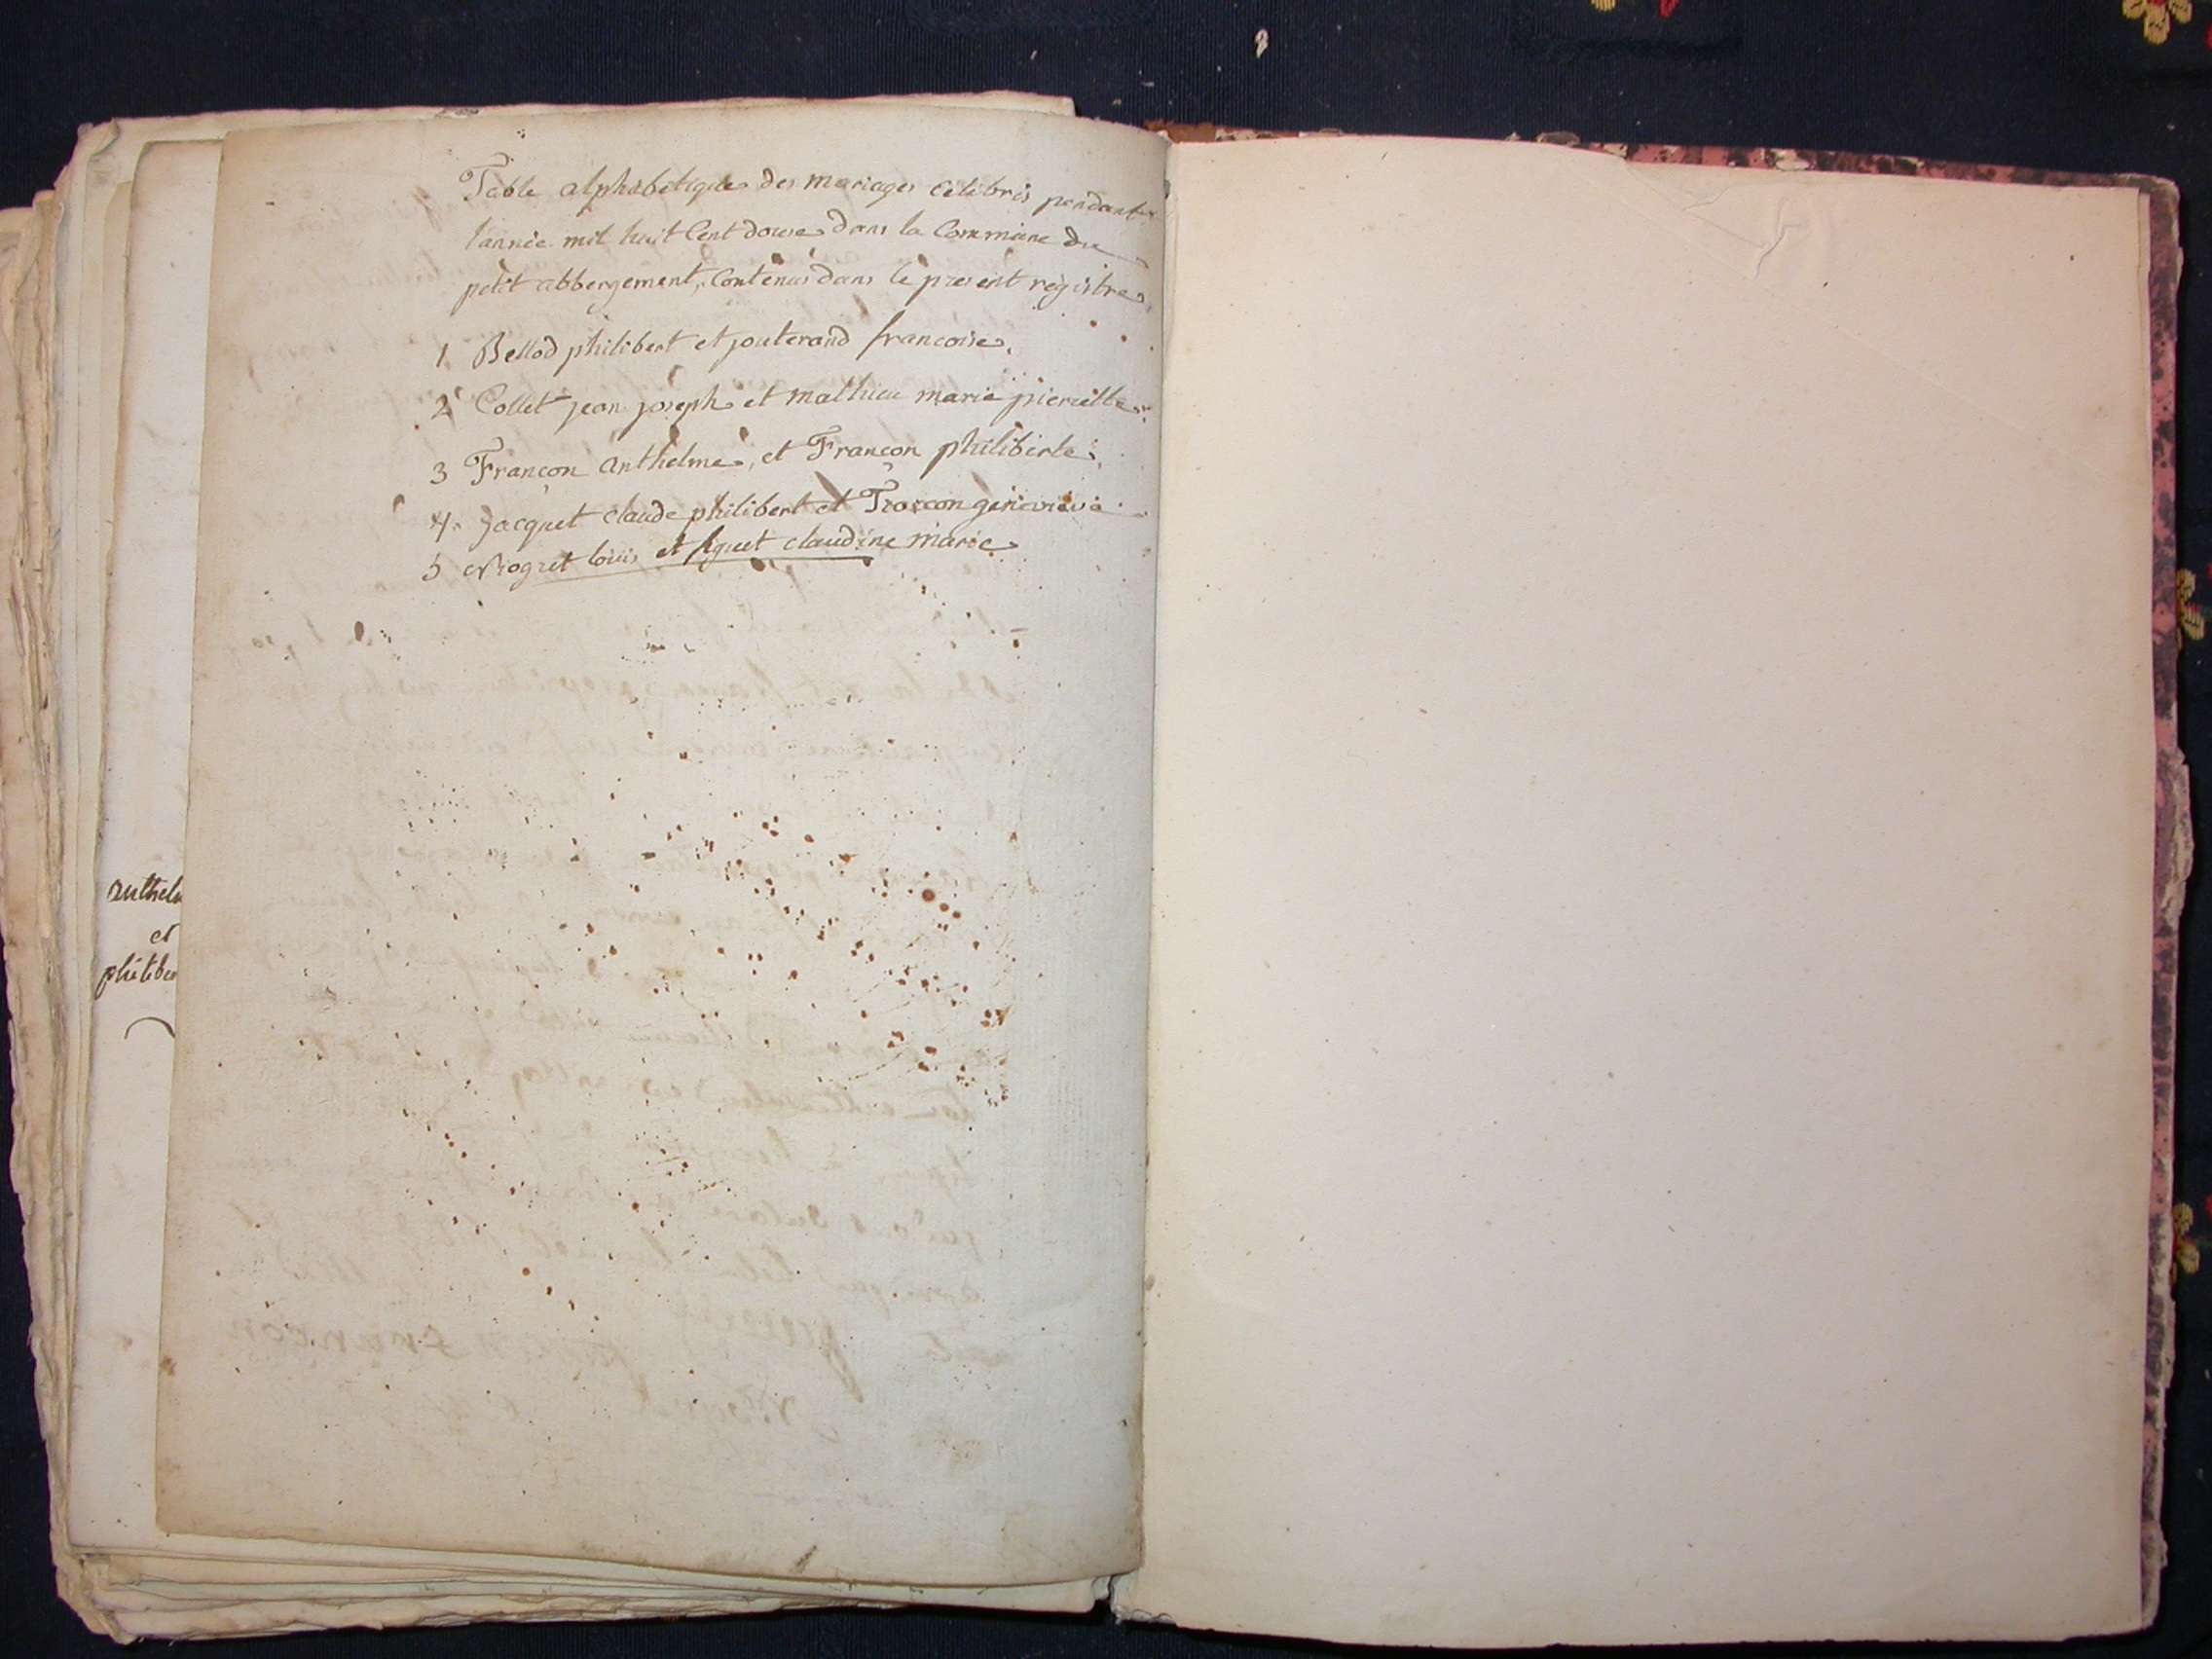 Table alphabetique des mariages célébrés pendant
l'année mil huit Cent douze dans la Commune du
petit abbergement, Contenus dans le present registre.
1 Bellod philibert et jouterand francoise.
2 Collet jean joseph et mathieu marie pierrette.
3 Françon anthelme, et Françon philiberte.
4. Jacquet claude philibert et genevieve
5 Niogret louis et claudine marie
anthel
et
philiber